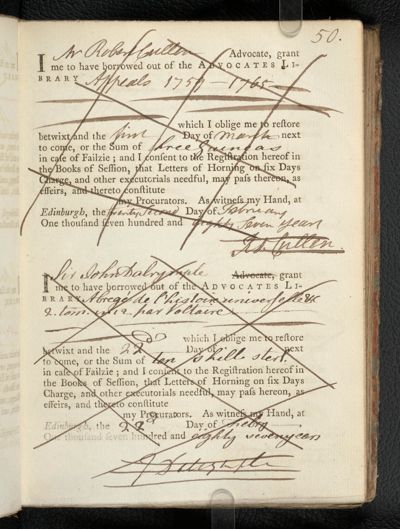 50.
I Mr Robert Cullen Advocate, grant
me to have borrowed out of the ADVOCATES LI-
BRARY Appeals 1757 - 1765
which I oblige me to reſtore
betwixt and the first Day of March next
to come, or the Sum of three Guineas
in caſe of Failzie; and I conſent to the Regiſtration hereof in
the Books of Seſſion, that Letters of Horning on ſix Days
Charge, and other executorials needful, may paſs thereon, as
effeirs, and thereto conſtitute
my Procurators. As witneſs my Hand, at
Edinburgh, the twenty second Day of February
One thouſand ſeven hundred and eighty seven years
Robt Cullen.
I Sir John Dalrymple Advocate, grant
me to have borrowed out of the ADVOCATES LI-
BRARY Abregé de l'histoire universelle &c
2. tom. par Voltaire
which I oblige me to reſtore
betwixt and the 22 Day of next
to come, or the Sum of ten shills sterl.
in caſe of Failzie; and I conſent to the Regiſtration hereof in
the Books of Seſſion, that Letters of Horning on ſix Days
Charge, and other executorials needful, may paſs thereon, as
effeirs, and thereto conſtitute
my Procurators. As witneſs my Hand, at
Edinburgh, the 22d Day of Febry
One thouſand ſeven hundred and eighty seven years
J Dalrymple